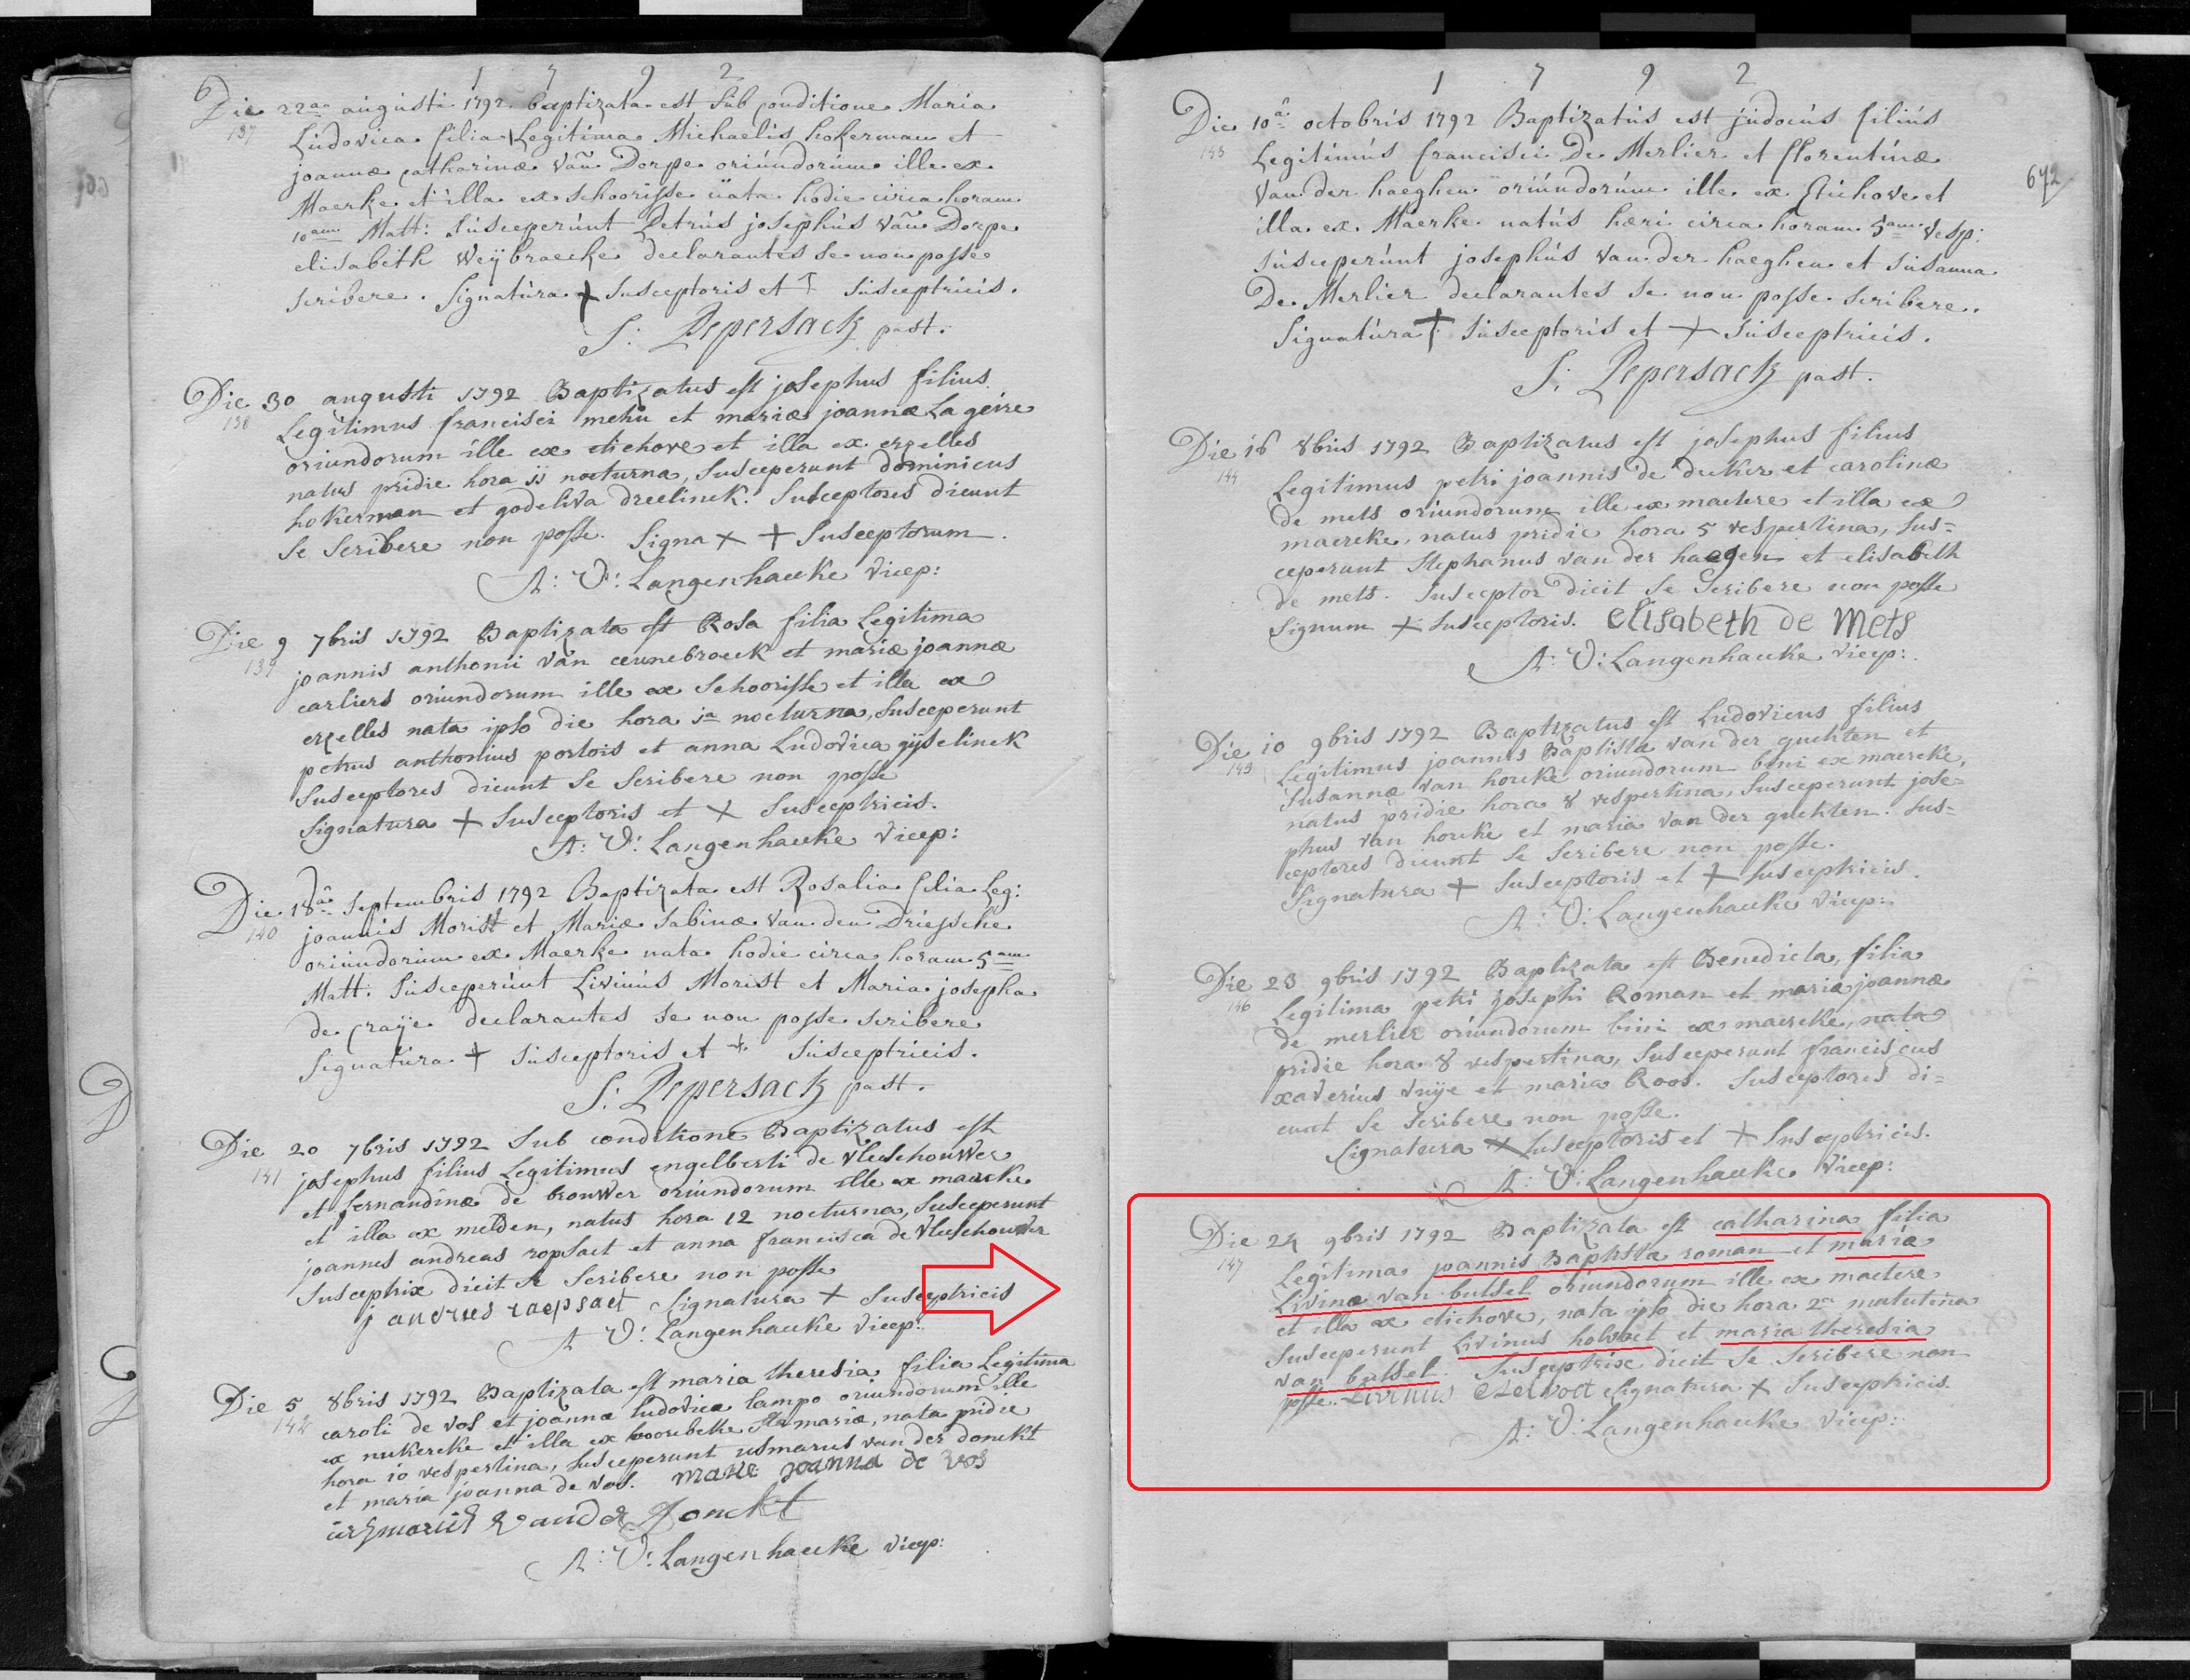 1 7 9 2
Die 22a augusti 1792 baptizata est sub conditione Maria
137
Ludovica filia Legitima Michaelis hokerman et
joannæ catharinæ Van Dorpe oriundorum ille ex
Maerke et illa ex schoorisse nata hodie circa horam
10am Matt: susceperunt Petrus josephus Van Dorpe
elisabeth Weÿbraecke declarantes se non posse
scribere. Signatura + susceptoris et + susceptricis.
S: Pepersack past.
Die 30 augusti 1792 Baptizatus est josephus filius
138
Legitimus francisci mehu et mariæ joannæ Lageire
oriundorum ille ex etichove et illa ex erzelles
natus pridie hora ii nocturna, susceperunt dominicus
hokerman et godeliva dreelinck. Susceptores dicunt
se scribere non posse. Signa + + susceptorum
A: V: Langenhaecke Vicep:
Die 9 7bris 1792 Baptizata est Rosa filia Legitima
139
joannis anthonii van cennebroeck et mariæ joannæ
carliers oriundorum ille ex schoorisse et illa ex
erzelles nata ipso die hora 1a nocturna, susceperunt
petrus anthonius portois et anna Ludovica gijselinck
susceptores dicunt se scribere non posse
signatura + susceptoris et + susceptricis.
A: V: Langenhaecke Vicep:
Die 18a septembris 1792 Baptizata est Rosalia filia Leg:
140
joannis Morist et Mariæ Sabinæ Van den Driessche
oriundorum ex Maerke nata hodie circa horam 5am
Matt. susceperunt Livinus Morist et Maria josepha
de craÿe declarantes se non posse scribere
signatura + susceptoris et + susceptricis.
S: Pepersack past.
Die 20 7bris 1792 sub conditione Baptizatus est
141
josephus filius Legitimus engelberti de vleeschouwer
et fernandinæ de brouwer oriundorum ille ex maercke
et illa ex melden, natus hora 12 nocturna, susceperunt
joannes andreas ropsaet et anna francisca de vleeschouwer
susceptrix dicit se scribere non posse
j andries raepsaet signatura + susceptricis
A V: Langenhaecke Vicep:
Die 5 8bris 1792 Baptizata est maria theresia filia Legitima
142
caroli de vos et joannæ ludovicæ lampo oriundorum ille
ex nukercke et illa ex hoorebeke sta mariæ, nata pridie
hora 10 vespertina, susceperunt usmarus van der donckt
et maria joanna de vos. marie joanna de vos
usmarus vander Donckt
A: V: Langenhaecke vicep:
1 7 9 2
672
Die 10a octobris 1792 Baptizatus est judocus filius
143
Legitimus francisci De Merlier et florentinæ
Van der haeghen oriundorum ille ex Etichove et
illa ex Maerke natus hæri circa horam 5am Vesp:
susceperunt josephus Van der haeghen et susanna
De Merlier declarantes se non posse scribere.
Signatura + susceptoris et + susceptricis.
S: Pepersack past.
Die 16 8bris 1792 Baptizatus est josephus filius
144
Legitimus petri joannis de decker et carolinæ
de mets oriundorum ille ex maetere et illa ex
maercke, natus pridie hora 5 vespertina, sus=
ceperunt stephanus van der haegen et elisabeth
de mets. susceptor dicit se scribere non posse
signum + susceptoris. elisabeth de Mets
A: V: Langenhaecke Vicep:
Die 10 9bris 1792 Baptizatus est Ludovicus filius
145
Legitimus joannis Baptistæ van der guchten et
susannæ van houcke oriundorum bini ex maercke,
natus pridie hora 8 vespertina, susceperunt jose=
phus van houcke et maria van der guchten. sus=
ceptores dicunt se scribere non posse.
signatura + susceptoris et + susceptricis.
A: V: Langenhaecke Vicep:
Die 23 9bris 1792 Baptizata est Benedicta, filia
146
Legitima petri josephi Roman et mariæ joannæ
de merlier oriundorum bini ex maercke, nata
pridie hora 8 vespertina, susceperunt franciscus
xaverius vuije et maria Roos. susceptores di=
cunt se scribere non posse.
signatura + susceptoris et + susceptricis.
A: V: Langenhaecke Vicep:
Die 24 9bris 1792 Baptizata est catharina filia
147
Legitima joannis Baptistæ roman et mariæ
Livinæ van butsel oriundorum ille ex maetere
et illa ex etichove, nata ipso die hora 2a matutina
susceperunt Livinus holvoet et maria theresia
van butsel. susceptrix dicit se scribere non
posse. Livinus signatura + susceptricis.
A: V: Langenhaecke Vicep: